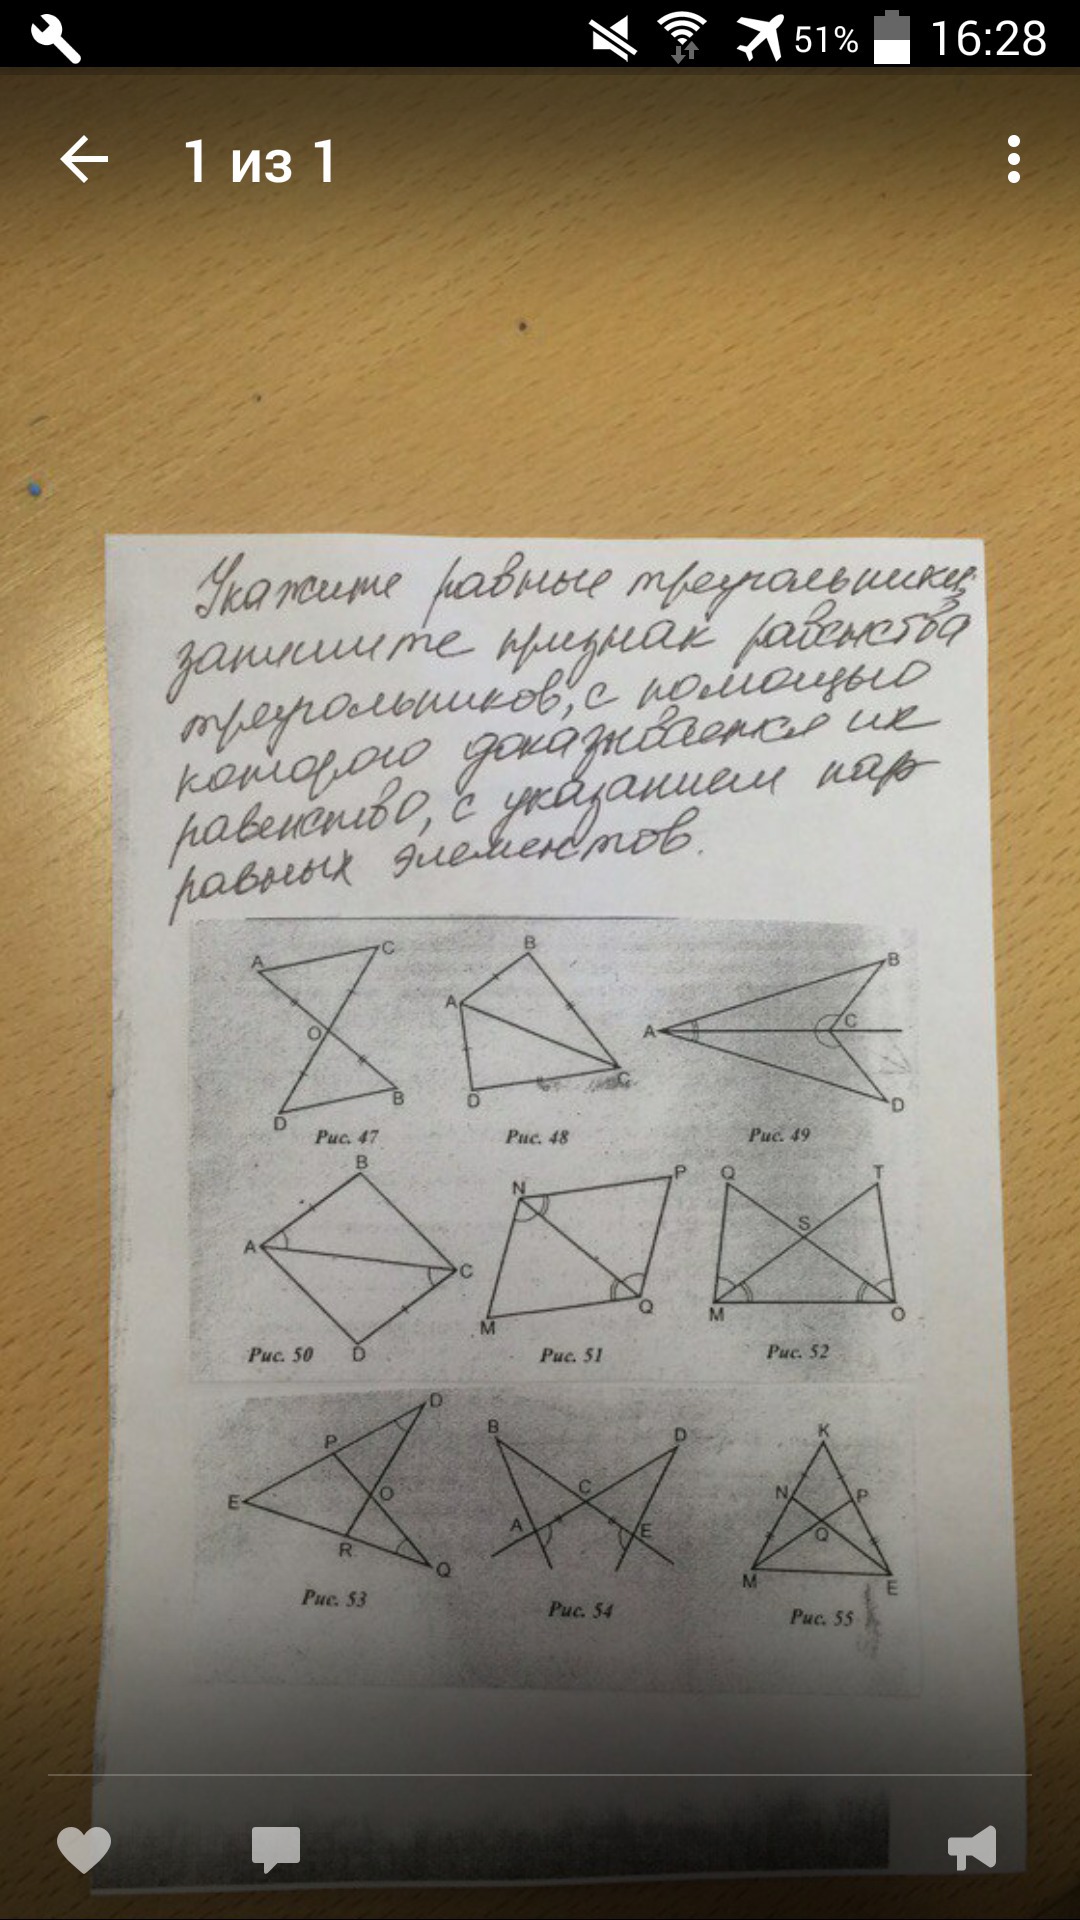 51% 16:28
1 из 1
Укажите равные треугольники,
запишите признак равенства
треугольников, с помощью
которого доказывается их
равенство, с указанием пар
равных элементов.
A C O D B
Рис. 47
B A D C
Рис. 48
B A C D
Рис. 49
B A C D
Рис. 50
N P M Q
Рис. 51
Q T S M O
Рис. 52
D P E O R Q
Рис. 53
B D C A E
Рис. 54
K N P Q M E
Рис. 55